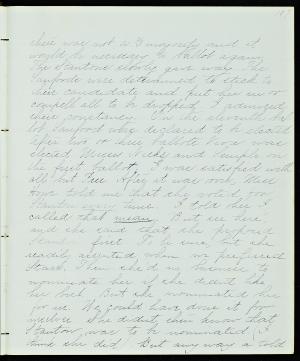 there was not a majority and it
would be necessary to ballot again.
The Stantons slowly gave way. The
Sanfords were determined to stick to
their candidate and put her in or
compell all to be dropped. I admired
their constancy. On the eleventh bal
lot Sanford was declared to be elected
after two or three ballots more was
elected Misses Hicks and Temple on
the first ballot. I was satisfied with
all but Free. After it was over, Miss
Howe told me that she voted for
Stanton every time. I told her I
called that mean. But see here
and she said that she proposed
Stand first. To be sure, but she
readily adjusted when we preferred
Stark. Then she'd no business to
nominate her if she didn't like
her best. But she nominated her
for us. We could have done it for
ourselves. She didn't even know that
Stanton was to be nominated. I
think she did. But any way a told